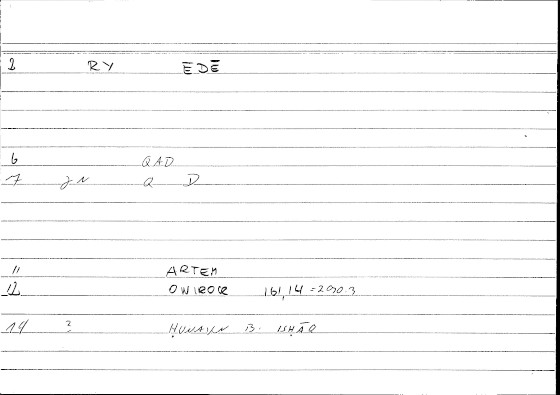 2 RY ĒDĒ
6 QAD
7 JN Q D
11 ARTEM
12 161,14 = 290.3
14 ? ḤUNAYN B. ISḤĀQ